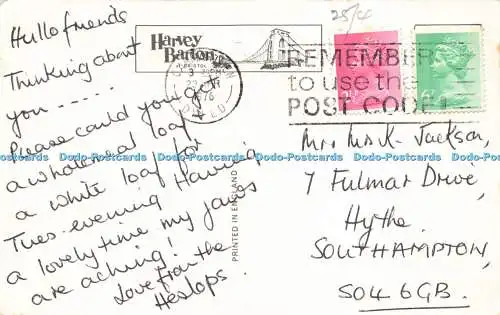 Hello friends
Thinking about
you -----
Please could you get
a wholemeal loaf &
a white loaf for
Tues. evening Having
a lovely time my jaws
are aching!
Love from the
Heslops.
Harvey
Barton
BRISTOL
PRINTED IN ENGLAND
25/4
REMEMBER
to use the
POST CODE
Mrs Mrs K. Jackson,
7 Fulmar Drive,
Hythe
SOUTHAMPTON,
SO4 6GB.
Dodo-Postcards Dodo-Postcards Dodo-Postcards Dodo-Postcards Dodo-Postcards Dodo-Postcards Dodo-Postcards